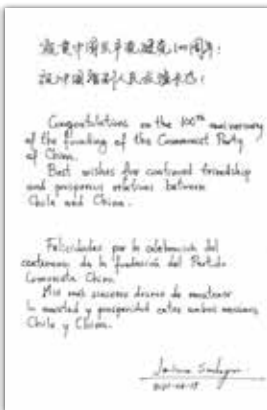 祝贺中国共产党建党100周年！
祝中国智利人民友谊长存！
Congratulations on the 100th anniversary
of the founding of the Communist Party
of China.
Best wishes for continued friendship
and prosperous relations between
Chile and China.
Felicidades por la celebración del
centenario de la fundación del Partido
Comunista Chino.
Mis más sinceros deseos de mantener
la amistad y prosperidad entre ambas naciones,
Chile y China.